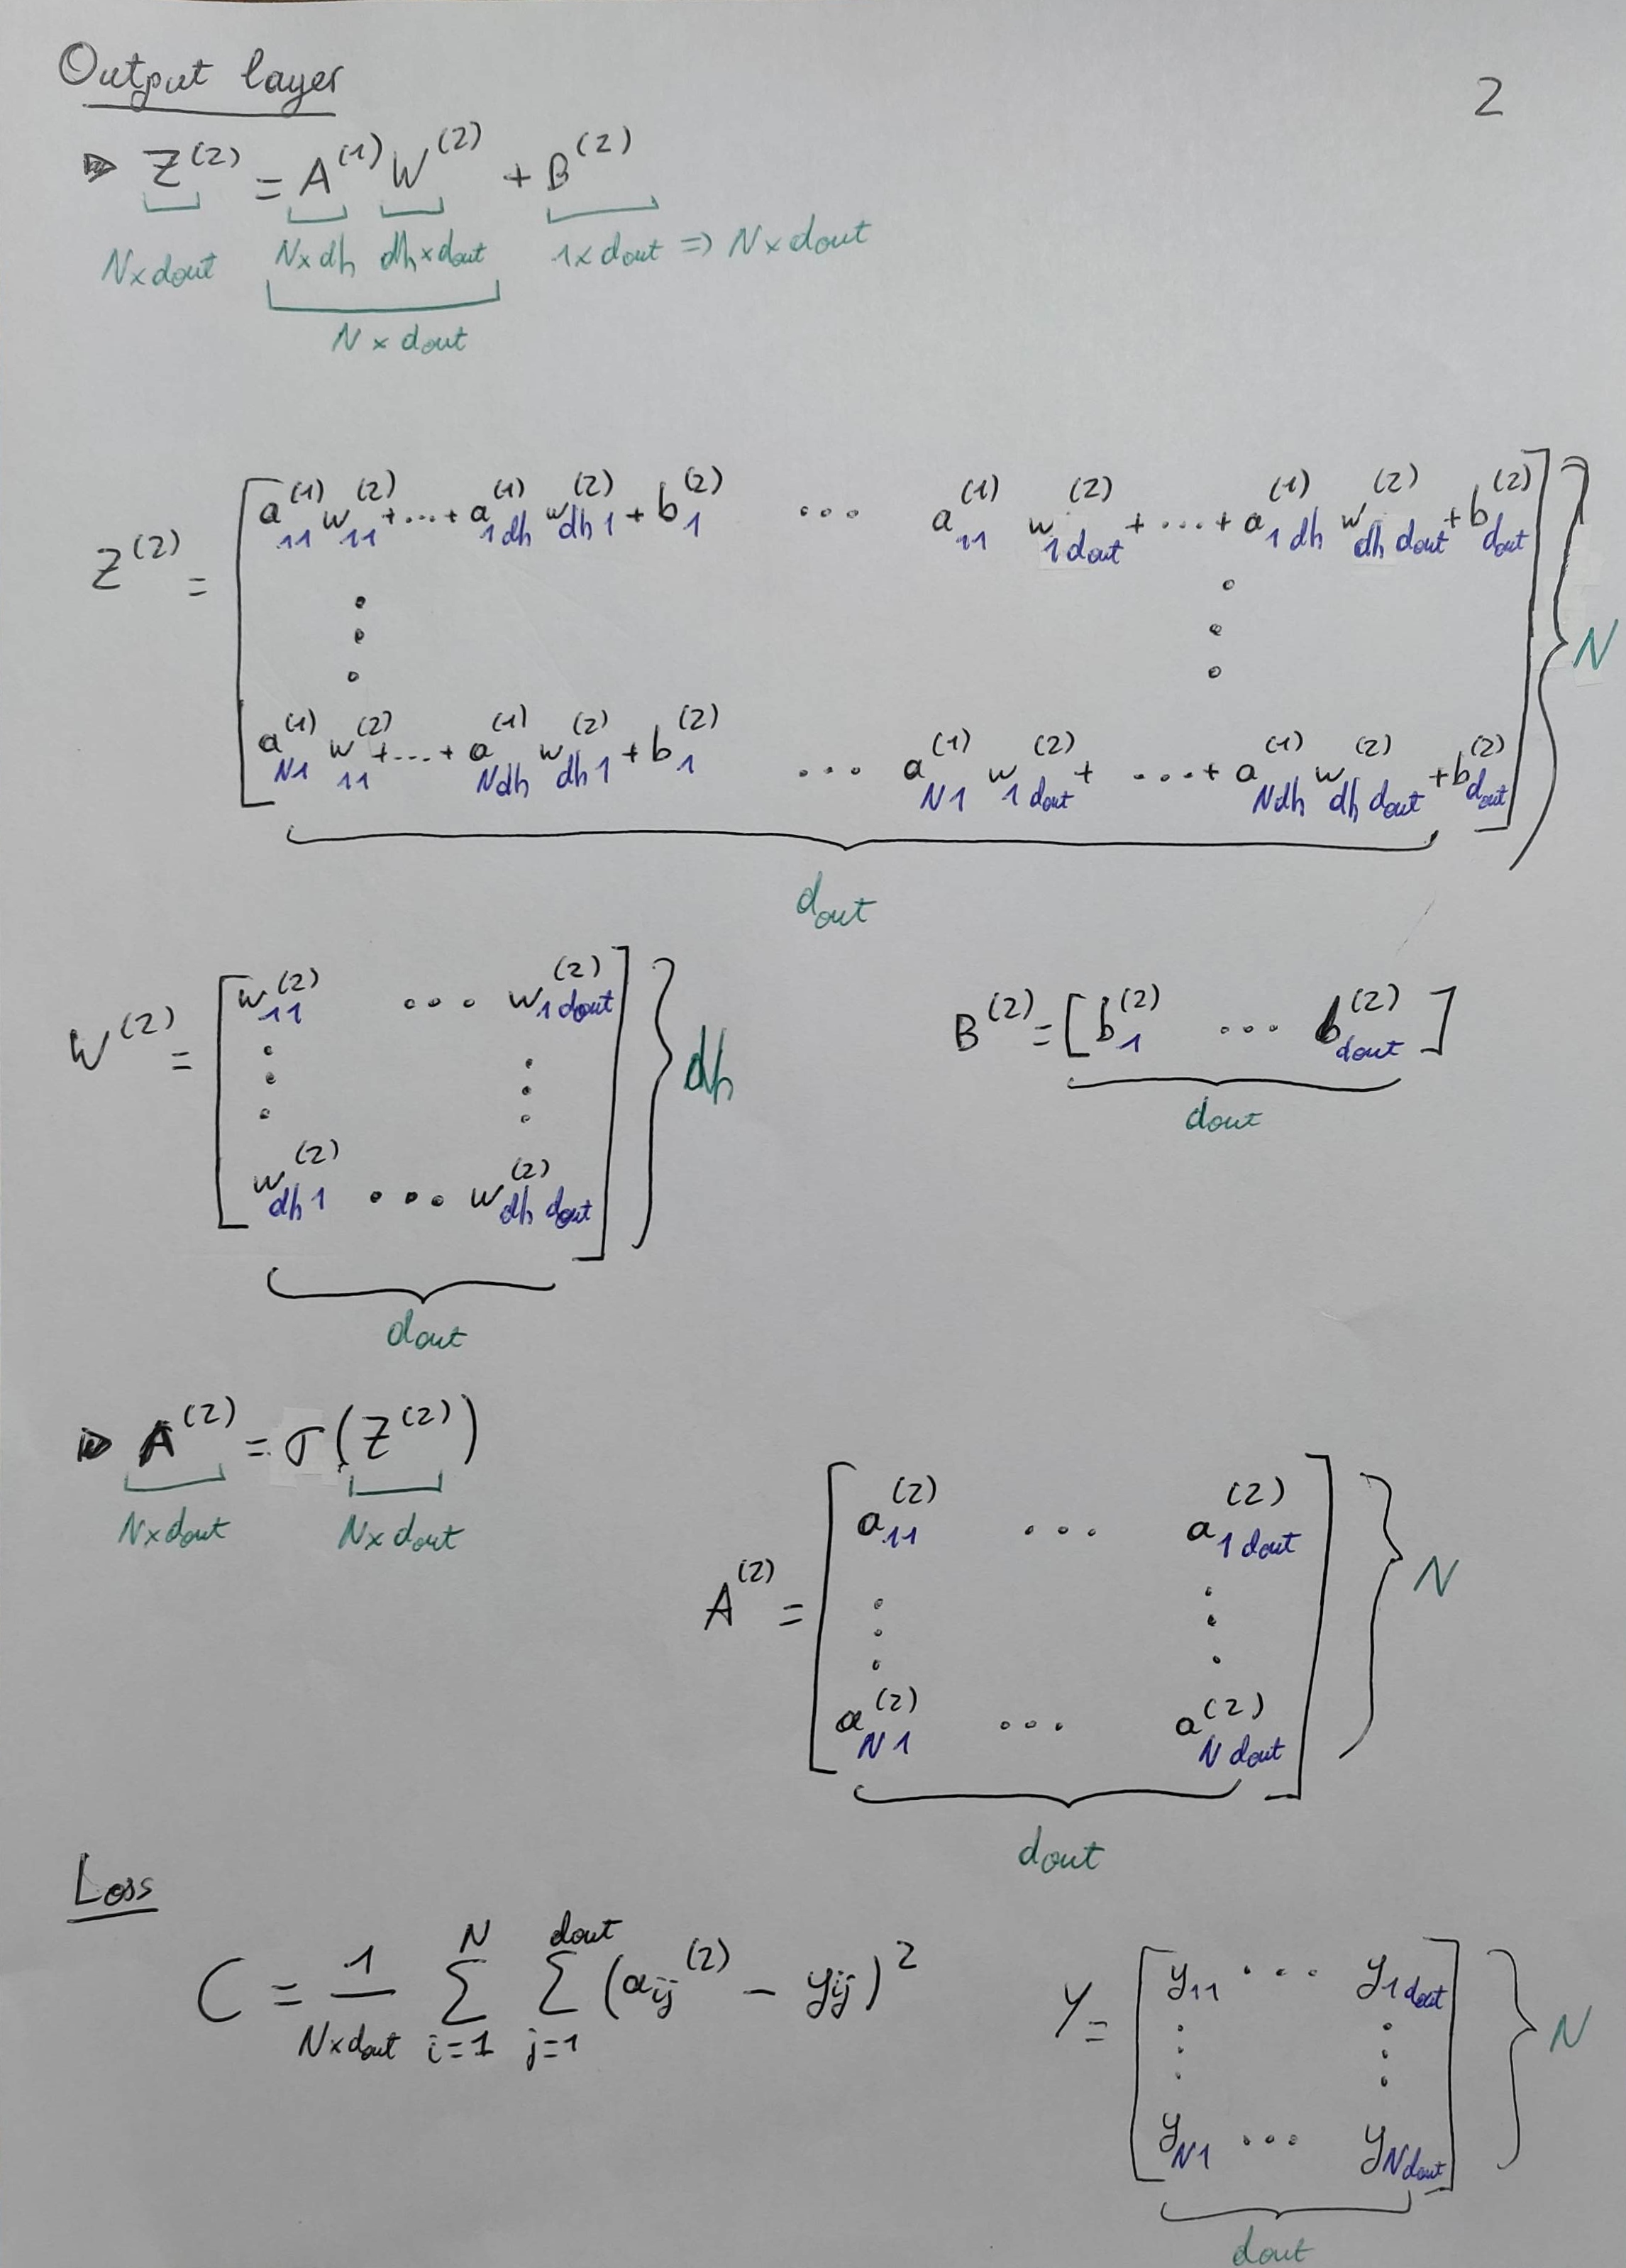 Output layer
2
Z^(2) = A^(1) W^(2) + B^(2)
N×dout N×dh dh×dout 1×dout => N×dout
N × dout
Z^(2) = [ a_11^(1) w_11^(2) + ... + a_1dh^(1) w_dh1^(2) + b_1^(2) ... a_11^(1) w_1dout^(2) + ... + a_1dh^(1) w_dh dout^(2) + b_dout^(2)
N
a_N1^(1) w_11^(2) + ... + a_Ndh^(1) w_dh1^(2) + b_1^(2) ... a_N1^(1) w_1dout^(2) + ... + a_Ndh^(1) w_dh dout^(2) + b_dout^(2) ]
dout
W^(2) = [ w_11^(2) ... w_1dout^(2)
dh
w_dh1^(2) ... w_dh dout^(2) ]
dout
B^(2) = [ b_1^(2) ... b_dout^(2) ]
dout
A^(2) = σ(Z^(2))
N×dout N×dout
A^(2) = [ a_11^(2) ... a_1dout^(2)
N
a_N1^(2) ... a_N dout^(2) ]
dout
Loss
C = 1/(N×dout) Σ_{i=1}^{N} Σ_{j=1}^{dout} (a_ij^(2) - y_ij)^2
Y = [ y_11 ... y_1dout
N
y_N1 ... y_Ndout ]
dout